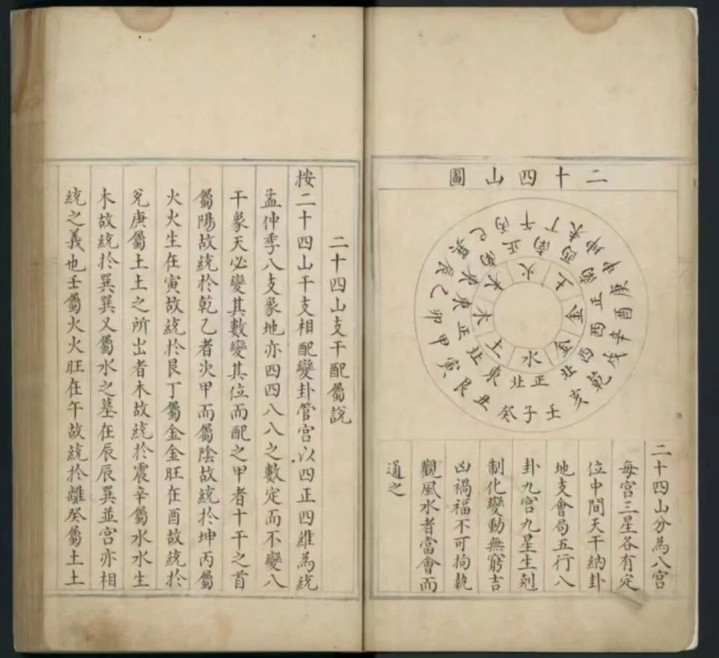 二十四山圖
壬子癸丑艮寅甲卯乙辰巽巳丙午丁未坤申庚酉辛戌乾亥
正北東北正東東南正南西南正西西北
水土木木火土金金
二十四山分為八宮
每宮三星各有定
位中間天干納卦
地支會局五行八
卦九宮九星生剋
制化變動無窮吉
凶禍福不可拘執
觀風水者當會而
通之
二十四山支干配屬說
按二十四山干支相配變卦管宮以四正四維為統
孟仲季八支象地亦四四八八之數定而不變八
干象天必變其數變其位而配之甲者十干之首
屬陽故統於乾乙者次甲而屬陰故統於坤丙屬
火火生在寅故統於艮丁屬金金旺在酉故統於
兌庚屬土土之所出者木故統於震辛屬水水生
木故統於巽巽又屬水之墓在辰辰巽並宮亦相
統之義也壬屬火火旺在午故統於離癸屬土土